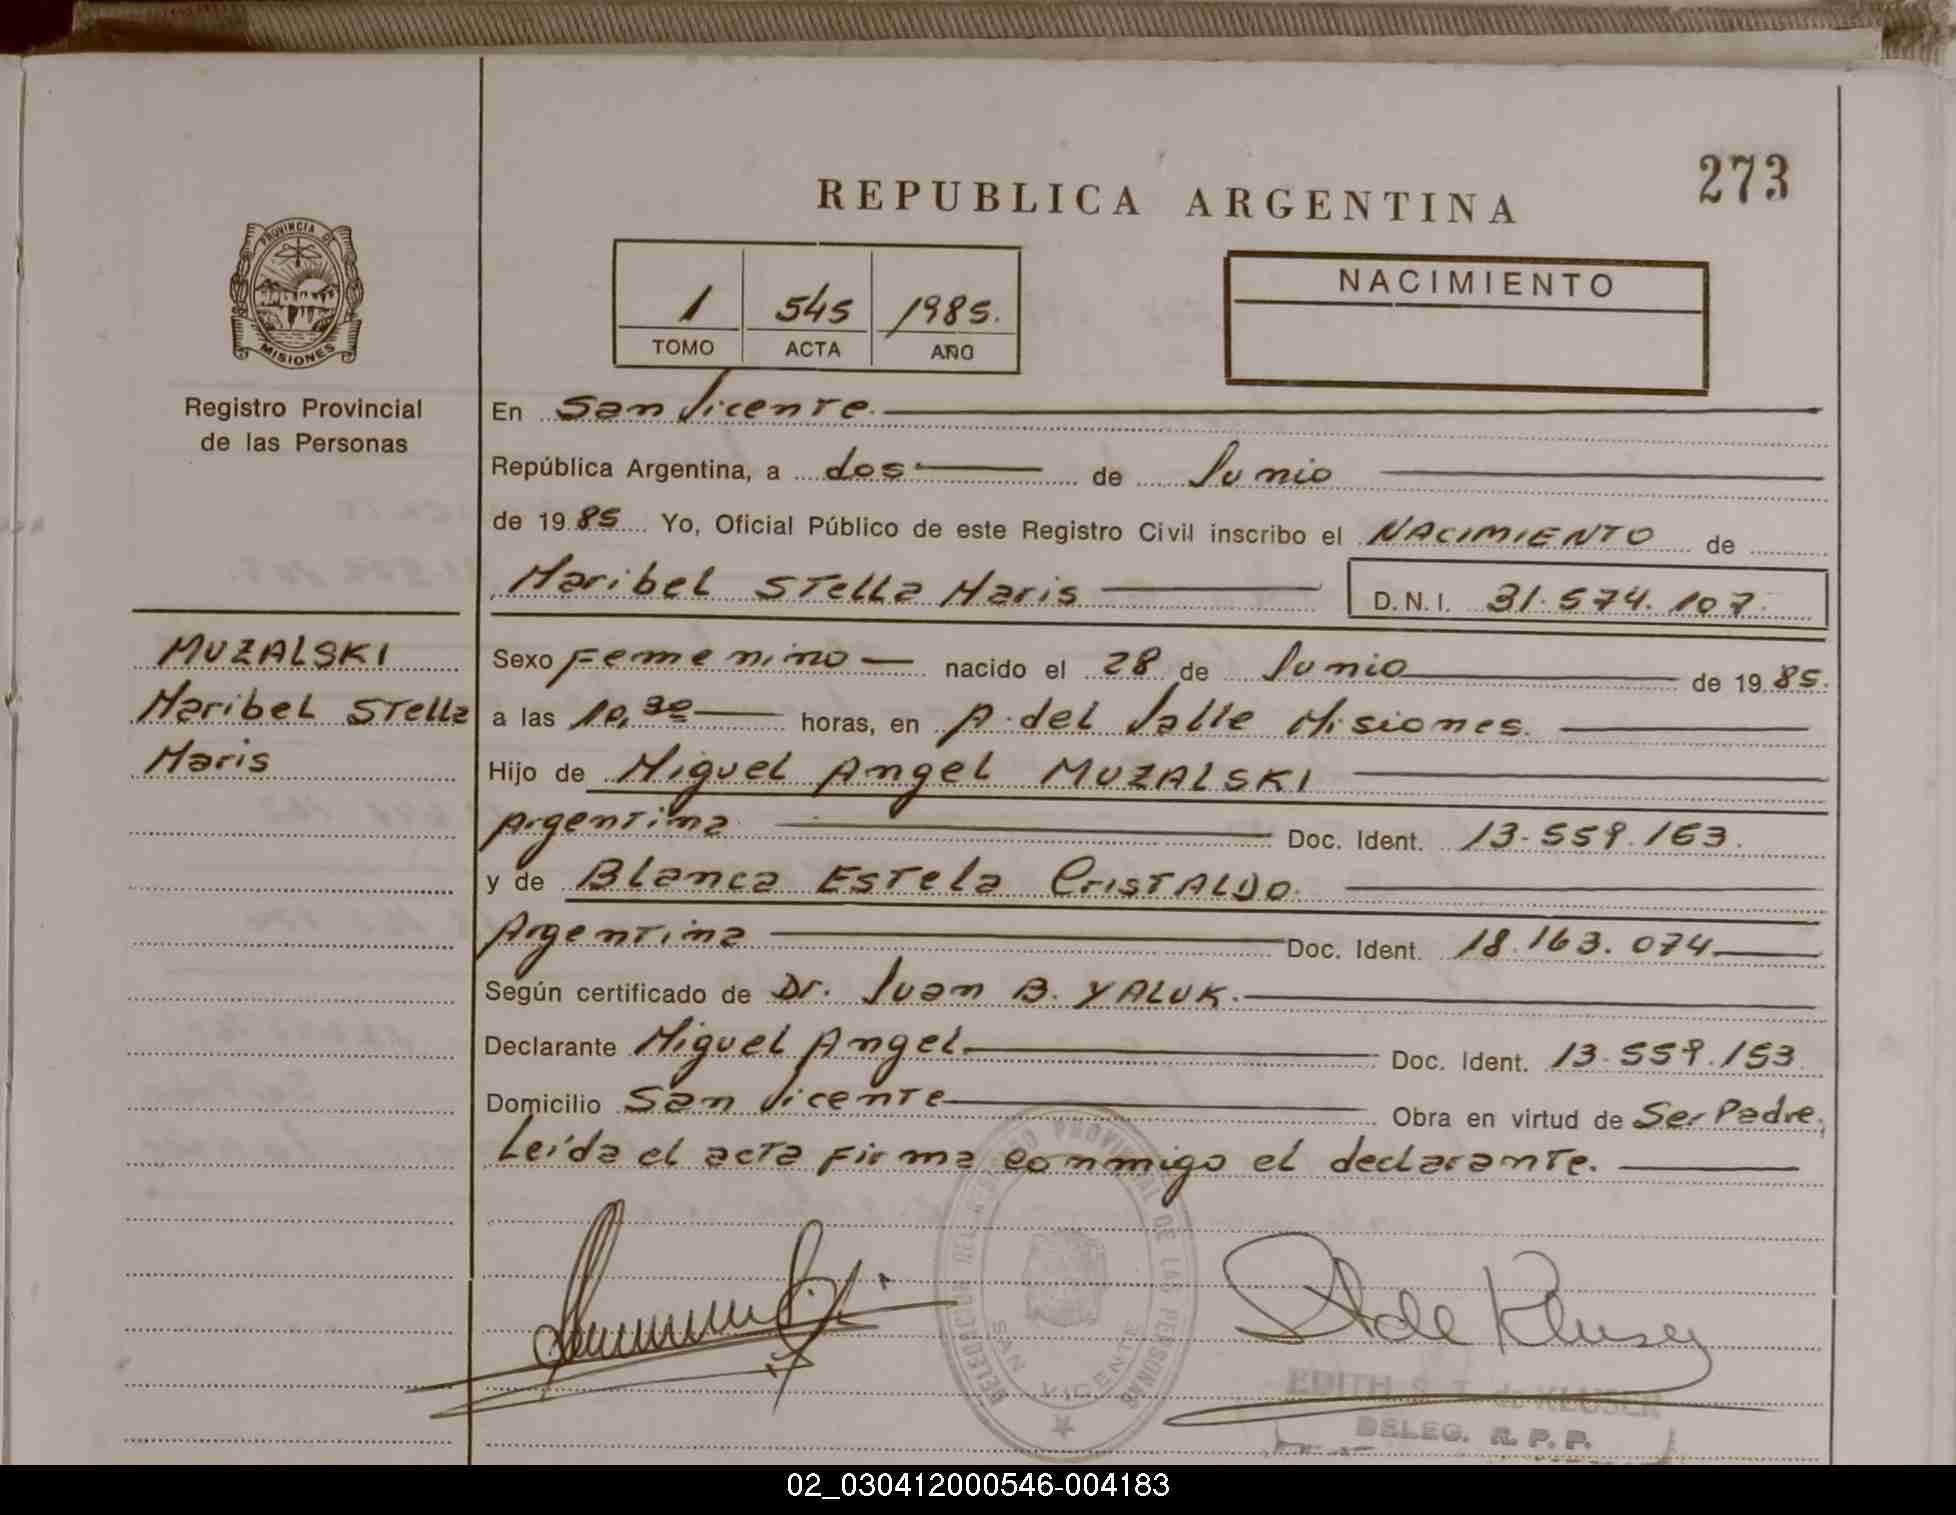 273
REPUBLICA ARGENTINA
PROVINCIA DE
MISIONES
1 545 1985.
TOMO ACTA AÑO
NACIMIENTO
Registro Provincial
de las Personas
En San Vicente.
República Argentina, a dos de Junio
de 1985 Yo, Oficial Público de este Registro Civil inscribo el NACIMIENTO de
Maribel Stella Maris D.N.I. 31.574.107.
MUZALSKI
Maribel Stella
Maris
Sexo Femenino nacido el 28 de Junio de 1985.
a las 10,30 horas, en A. del Valle Misiones.
Hijo de Miguel Angel MUZALSKI
Argentina Doc. Ident. 13.559.163.
y de Blanca Estela CRISTALDO.
Argentina Doc. Ident. 18.163.074
Según certificado de Dr. Juan B. YALUK.
Declarante Miguel Angel Doc. Ident. 13.559.153
Domicilio San Vicente Obra en virtud de Ser Padre,
Leída el acta firma conmigo el declarante.
DELEGACION DEL REGISTRO PROVINCIAL DE LAS PERSONAS
SAN VICENTE
St de Kluser
EDITH S. T. de KLUSER
DELEG. R. P. P.
02_030412000546-004183